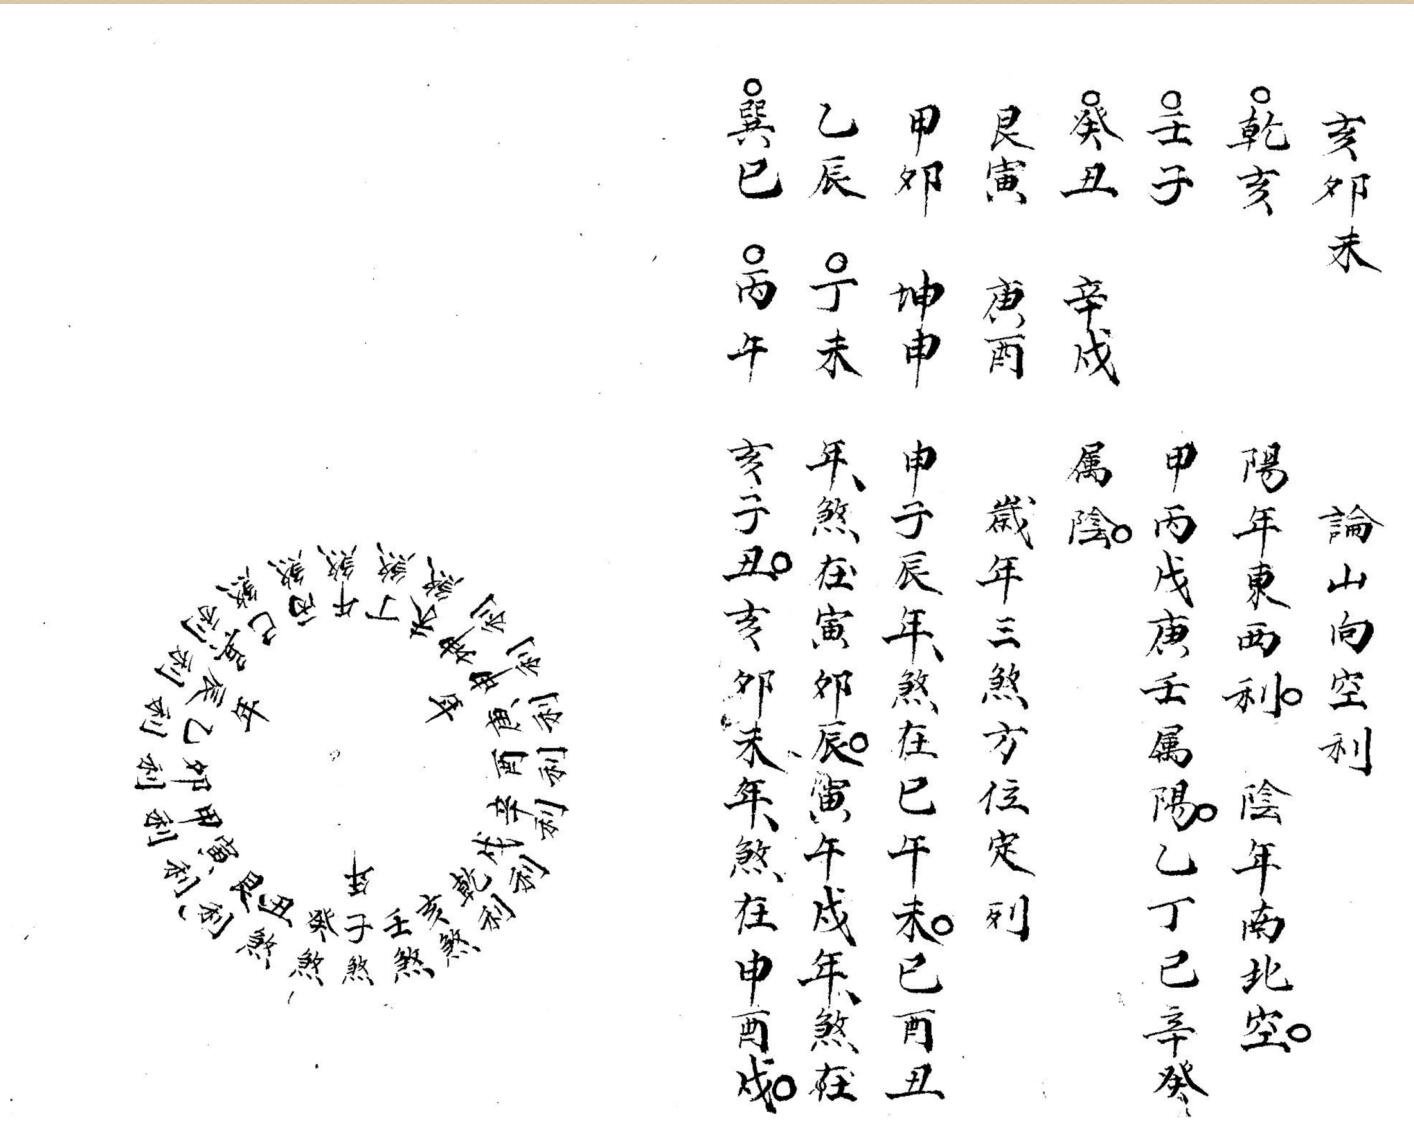 亥卯未　論山向空利
○乾亥　陽年東西利。陰年南北空。
○壬子　甲丙戊庚壬属陽。乙丁己辛癸
○癸丑　辛戌　属陰。
艮寅　庚酉　歳年三煞方位定列
甲卯　坤申　申子辰年、煞在巳午未。巳酉丑
乙辰　○丁未　年、煞在寅卯辰。寅午戌年、煞在
○巽巳　○丙午　亥子丑。亥卯未年、煞在申酉戌。
煞煞煞煞煞利利利利利利利煞煞煞煞煞利利利利利利利
巳丙午丁未坤申庚酉辛戌乾亥壬子癸丑艮寅甲卯乙辰巽
年年年